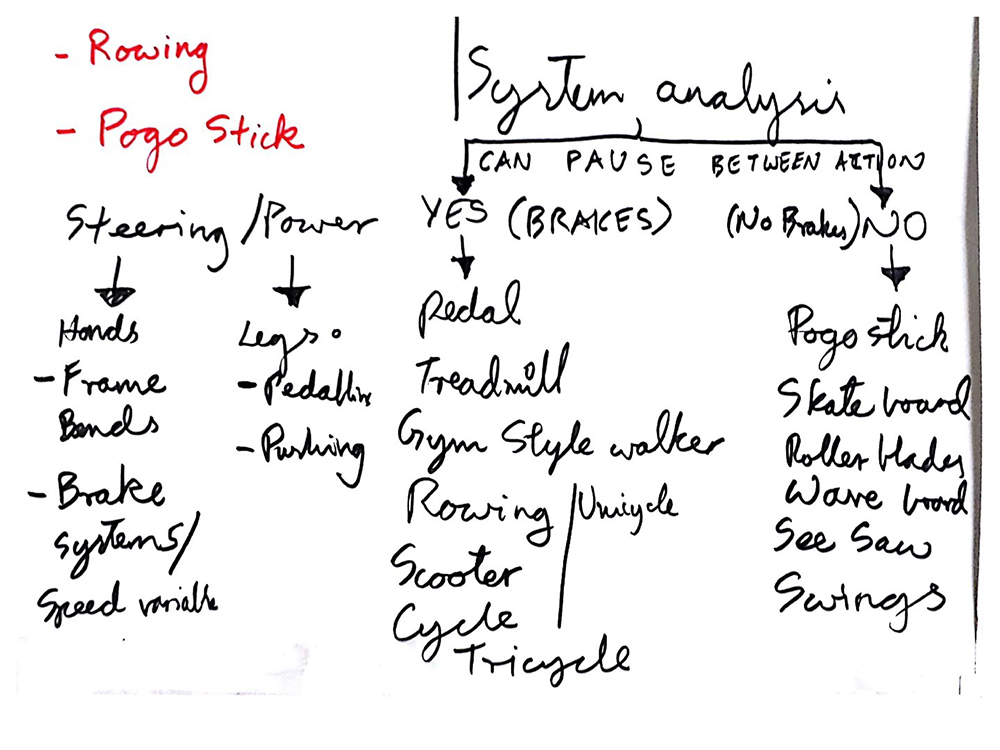 - Rowing
- Pogo Stick
Steering / Power
Hands
- Frame
Bends
- Brake
systems/
Speed variable
Legs.
- Pedalling
- Pushing
System analysis
CAN PAUSE BETWEEN ACTION
YES (BRAKES)
Pedal
Treadmill
Gym Style walker
Rowing / Unicycle
Scooter
Cycle
Tricycle
(No Brakes) NO
Pogo stick
Skate board
Roller blades
Wave board
See Saw
Swings